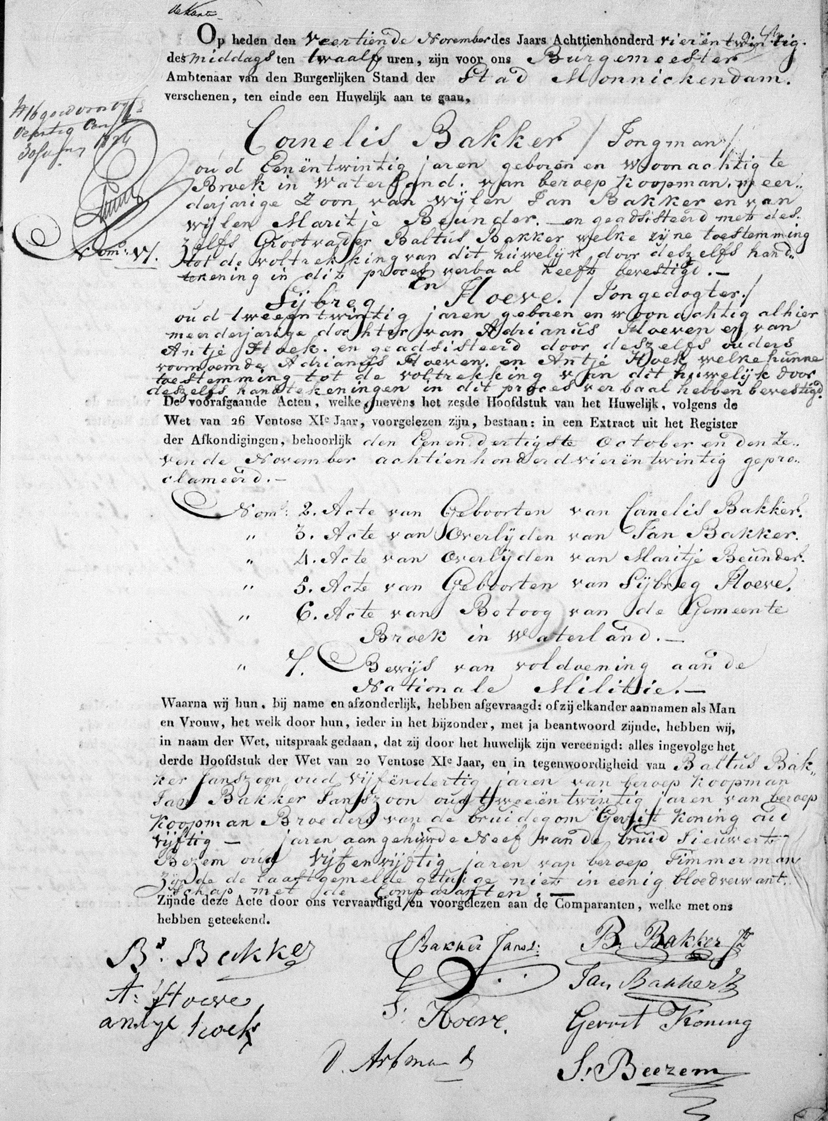 Op heden den veertiende November des Jaars Achttienhonderd vierentwintig.
des middags ten twaalf uren, zijn voor ons Burgemeester
Ambtenaar van den Burgerlijken Stand der Stad Monnickendam.
verschenen, ten einde een Huwelijk aan te gaan,
Cornelis Bakker / Jongman /
oud Eenëntwintig jaren geboren en woonachtig te
Broek in Waterland. van beroep koopman, meer-
derjarige Zoon van wijlen Jan Bakker en van
wijlen Maritje Beunder. en geadsisteerd met des-
zelfs Grootvader Baltus Bakker welke zijne toestemming
tot de voltrekking van dit huwelijk door deszelfs hand-
tekening in dit proces verbaal heeft bevestigd. —
En
Sijbreg Hoeve. / Jongedogter. /
oud tweeentwintig jaren geboren en woonachtig alhier
meerderjarige dochter van Adrianus Hoeven en van
Antje Hoek. en geadsisteerd door deszelfs ouders
voornoemde Adrianus Hoeven. en Antje Hoek welke hunne
toestemming tot de voltrekking van dit huwelijk door
deszelfs handtekeningen in dit proces verbaal hebben bevestigd
De voorafgaande Acten, welke, nevens het zesde Hoofdstuk van het Huwelijk, volgens de
Wet van 26 Ventose XIe Jaar, voorgelezen zijn, bestaan: in een Extract uit het Register
der Afkondigingen, behoorlijk den Eenendertigste October en den Ze-
vende November achtienhonderd vierëntwintig gepro-
clameerd. —
Nom: 2. Acte van Geboorten van Cornelis Bakker.
" 3. Acte van Overlijden van Jan Bakker.
" 4. Acte van Overlijden van Maritje Beunder.
" 5. Acte van Geboorten van Sijbreg Hoeve.
" 6. Acte van Betoog van de Gemeente
Broek in Waterland. —
" 7. Bewijs van voldoening aan de
Nationale Militie. —
Waarna wij hun, bij name en afzonderlijk, hebben afgevraagd: of zij elkander aannamen als Man
en Vrouw, het welk door hun, ieder in het bijzonder, met ja beantwoord zijnde, hebben wij,
in naam der Wet, uitspraak gedaan, dat zij door het huwelijk zijn vereenigd: alles ingevolge het
derde Hoofdstuk der Wet van 20 Ventose XIe Jaar, en in tegenwoordigheid van Baltus Bak-
ker Janszoon oud vijfëndertig jaren van beroep koopman
Jan Bakker Janszoon oud tweeëntwintig jaren van beroep
koopman Broeders van de bruidegom Gerrit Koning oud
vijftig — jaren aangehuwde Neef van de bruid Sieuwert
Bezem oud vijfenvijftig jaren van beroep Timmerman
zijnde de laastgemelde getuige niet in eenig bloedverwant-
schap met de Comparanten —
Zijnde deze Acte door ons vervaardigd en voorgelezen aan de Comparanten, welke met ons
hebben geteekend.
Bs. Bakker C Bakker Jansz: B. Bakker Jz
A: Hoeve Jan Bakker Jz
antje hoek S: Hoeve. Gerrit Koning
S. Beezem